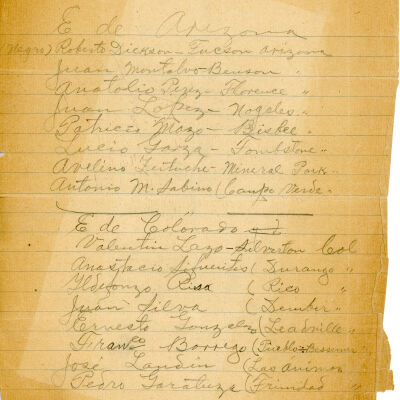 E de Arizona
(Negro) Roberto Dickson - Tucson Arizona
Juan Montalvo - Benson "
Anatolio Perez - Florence "
Juan Lopez - Nogales "
Patricio Mazo - Bisbee "
Lucio Garza - Tombstone "
Avelino - Mineral Park "
Antonio M. Sabino (Campo Verde "
E de Colorado
Valentin Lazo - Silverton Col
Anastacio Sifuentes (Durango "
Ildefonzo Risa (Rico "
Juan Silva (Denbir "
Ernesto Gonzalez (Leadville "
Franco Borrego (Pueblo Bessemer
José Landin (Las Animas
Pedro (Trinidad "